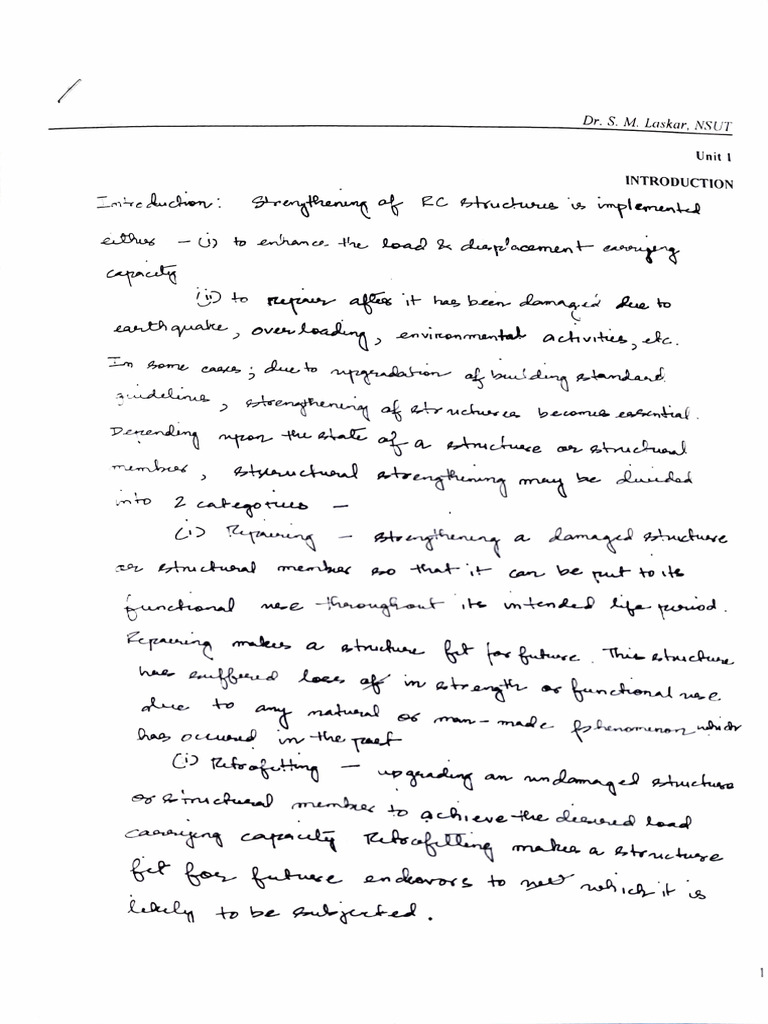 Dr. S. M. Laskar, NSUT
Unit 1
INTRODUCTION
Introduction: Strengthening of RC structures is implemented
either – (i) to enhance the load & displacement carrying
capacity
(ii) to repair after it has been damaged due to
earthquake, overloading, environmental activities, etc.
In some cases; due to upgradation of building standard
guidelines, strengthening of structures becomes essential.
Depending upon the state of a structure or structural
member, structural strengthening may be divided
into 2 categories –
(i) Repairing – strengthening a damaged structure
or structural member so that it can be put to its
functional use throughout its intended life period.
Repairing makes a structure fit for future. This structure
has suffered loss of in strength or functional use
due to any natural or man-made phenomenon which
has occured in the past
(i) Retrofitting – upgrading an undamaged structure
or structural member to achieve the desired load
carrying capacity Retrofitting makes a structure
fit for future endeavors to which it is
likely to be subjected.
1